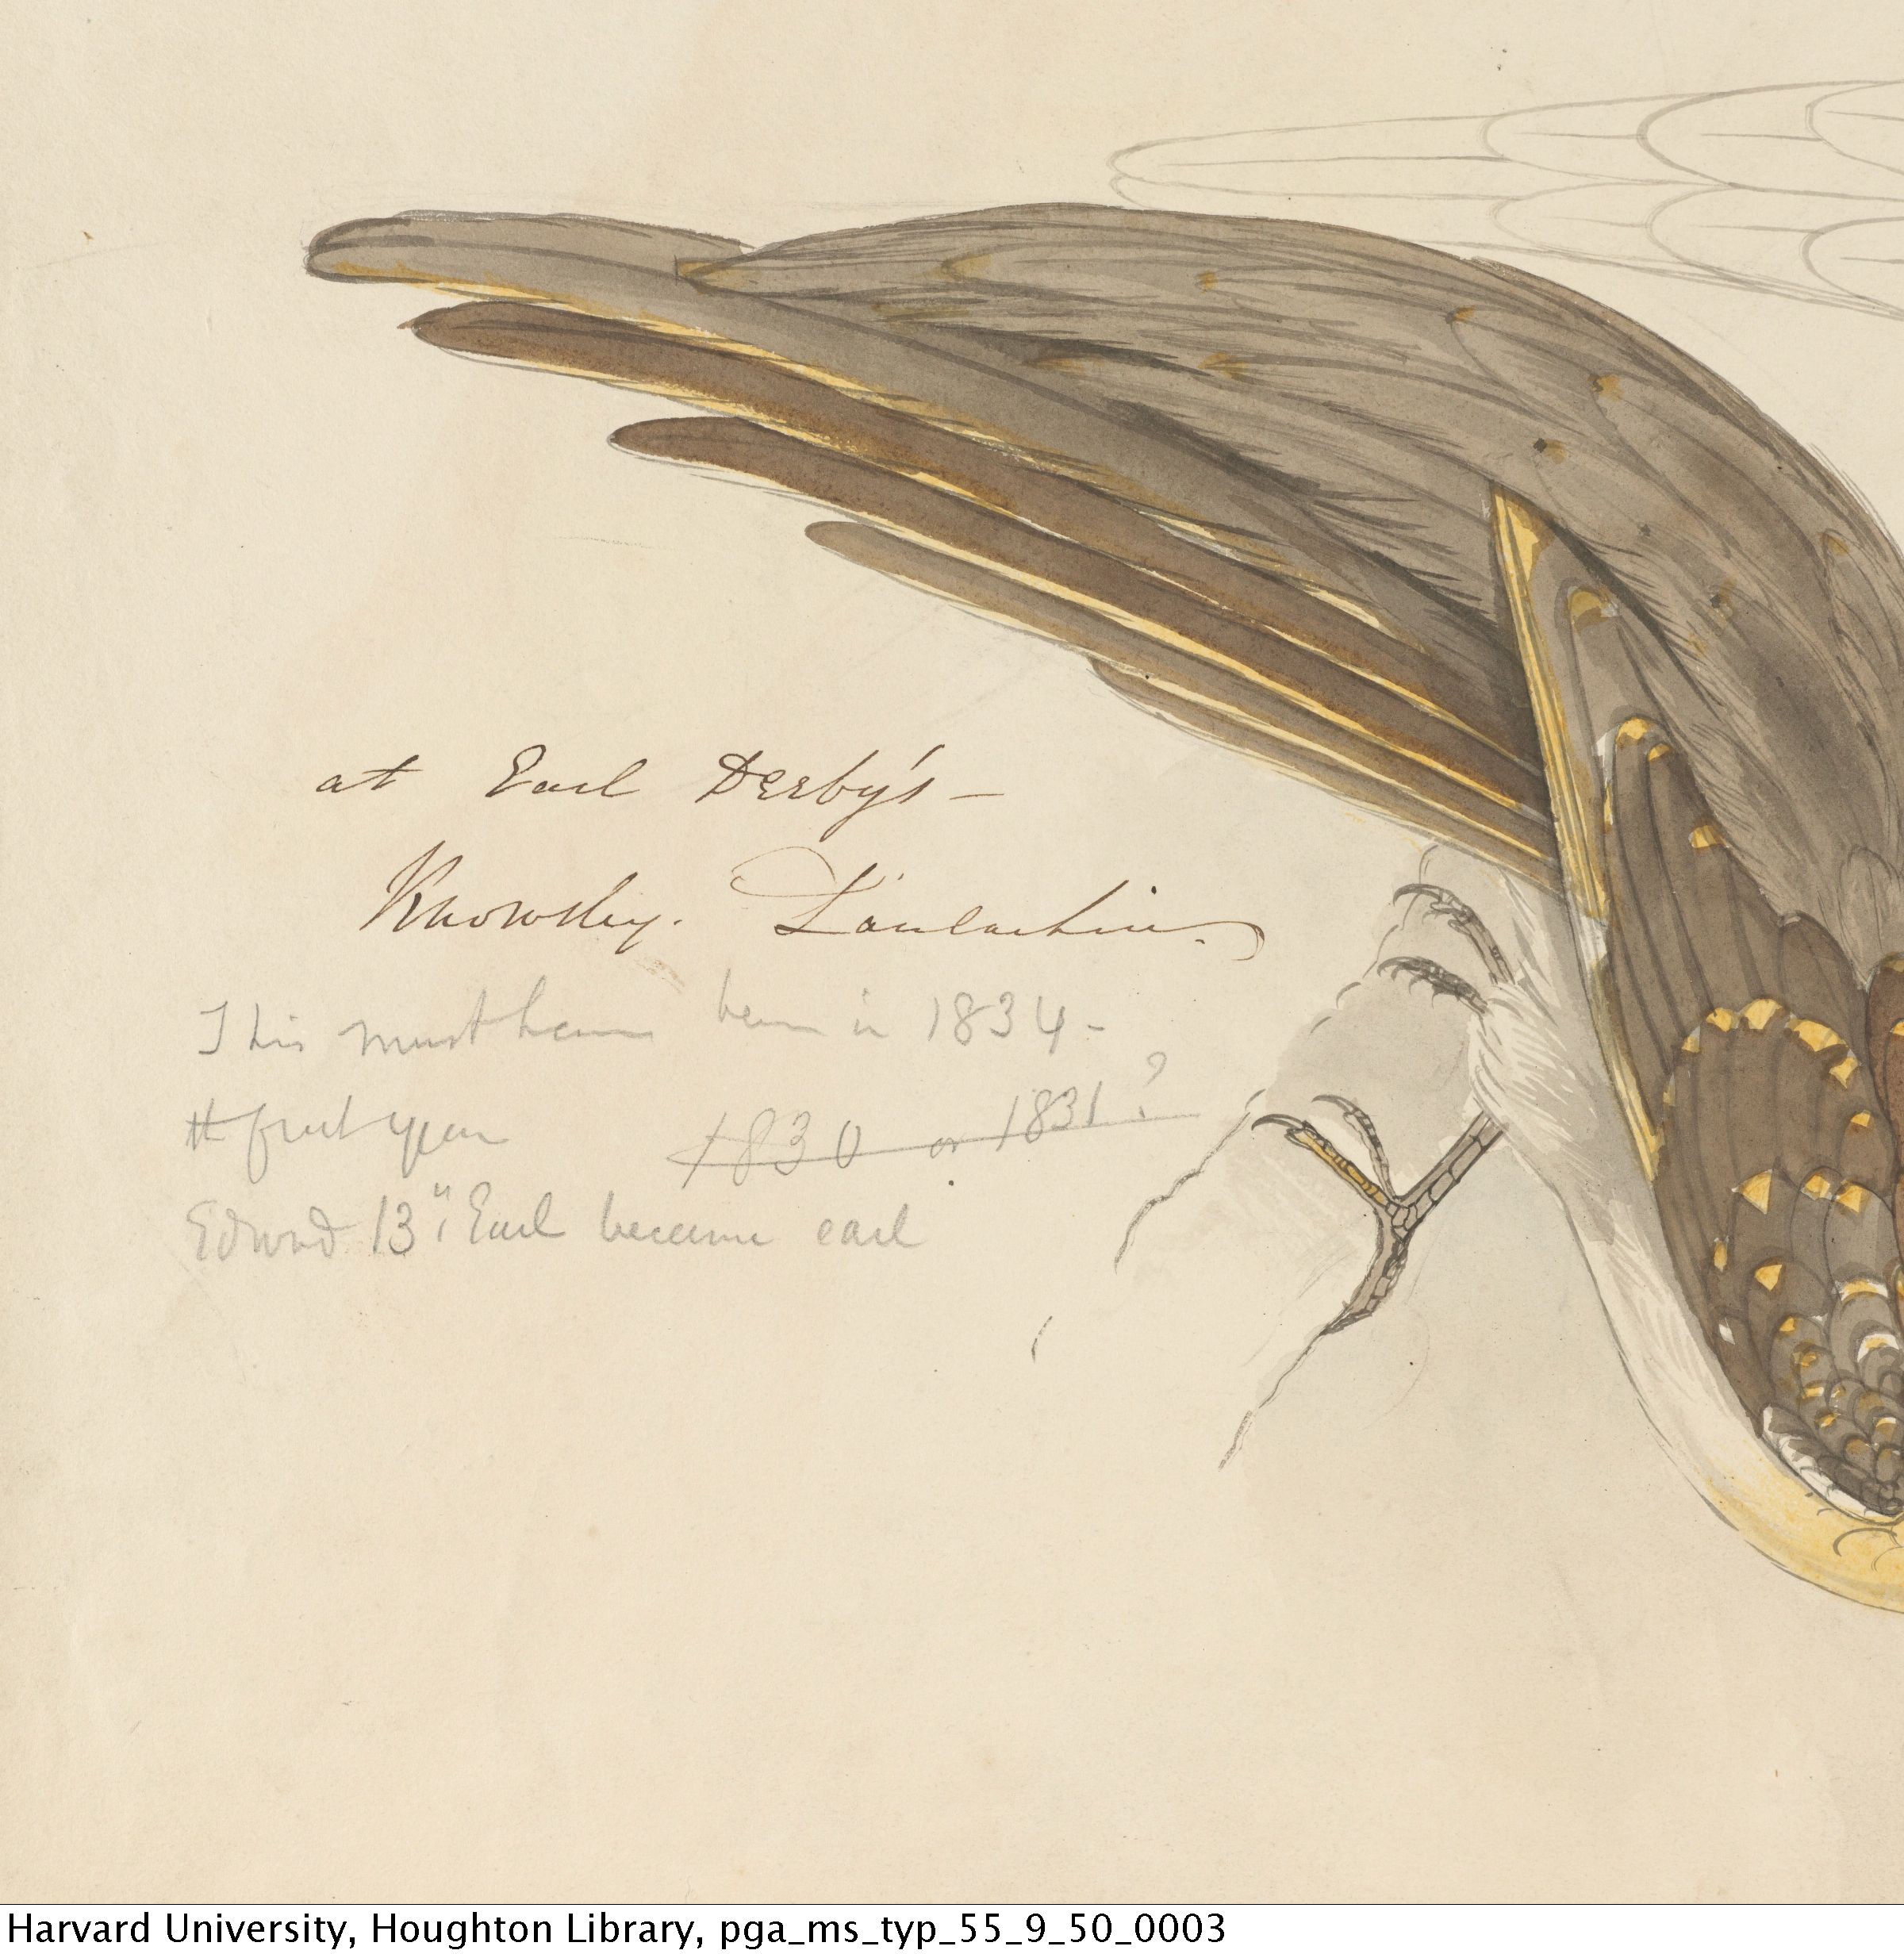 at Earl Derby's —
Knowsley. Lancashire.
This must have been in 1834 -
the first year 1830 or 1831?
Edward 13th Earl became earl
Harvard University, Houghton Library, pga_ms_typ_55_9_50_0003